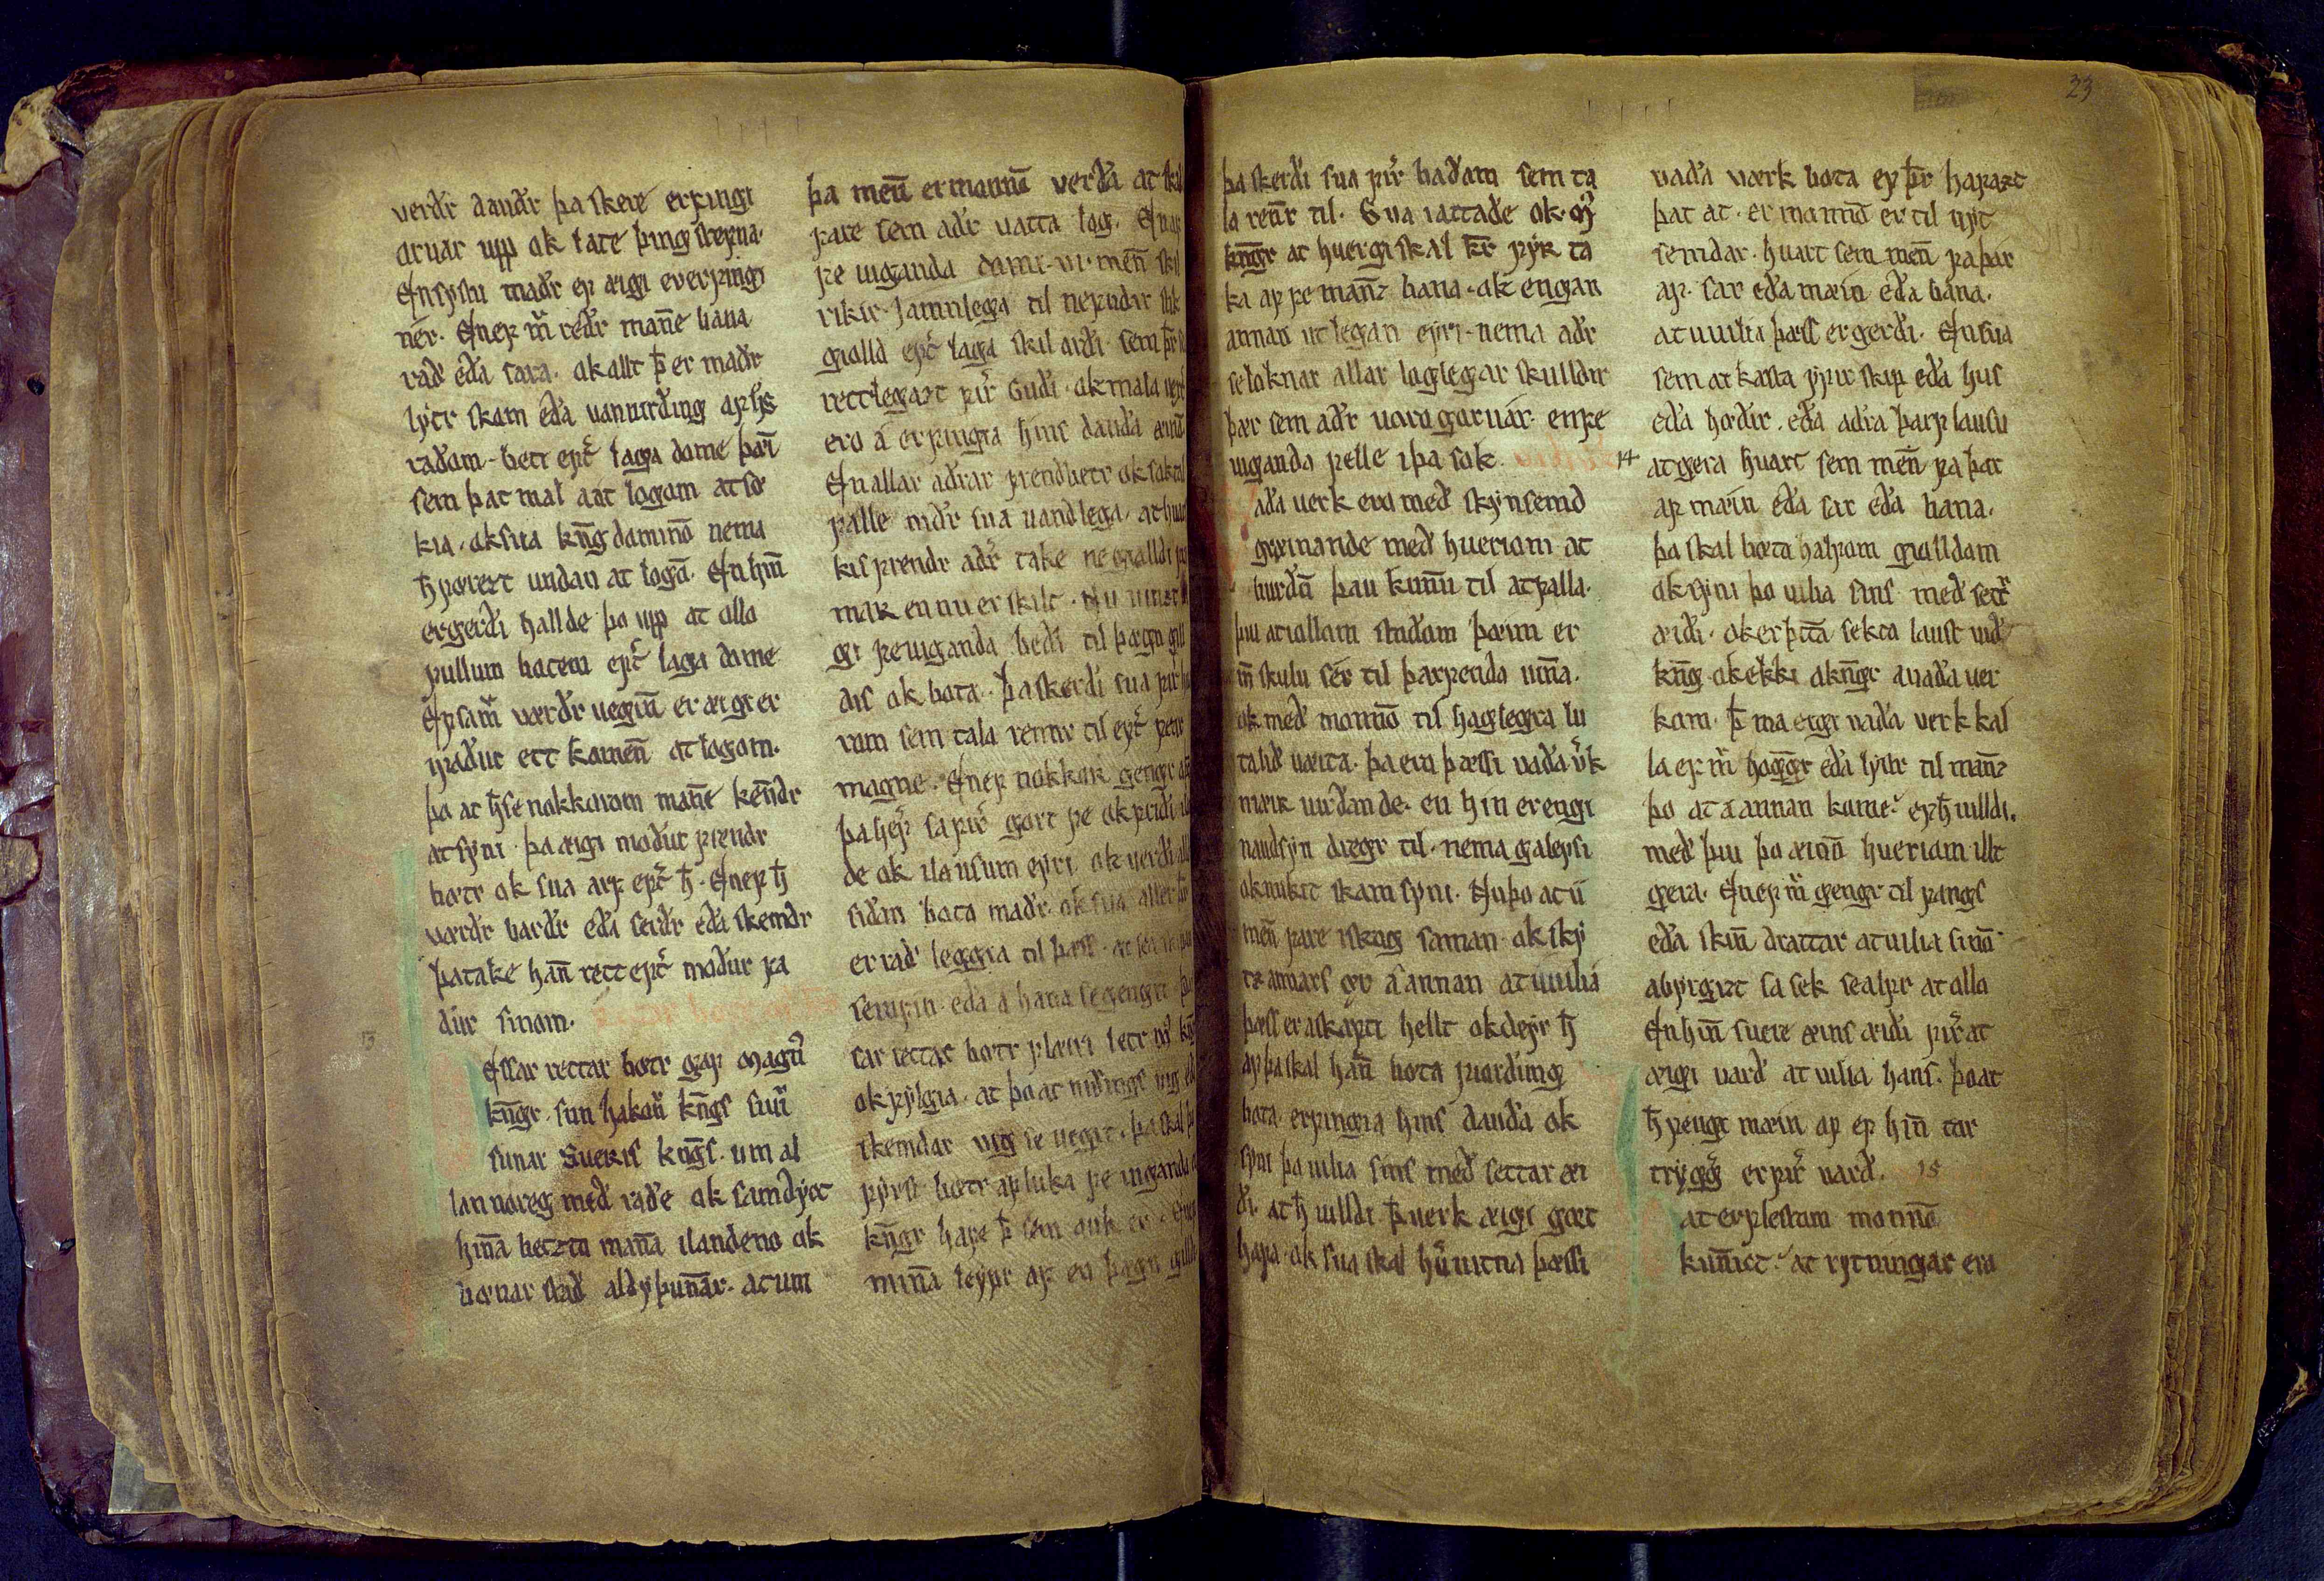 verdr daudr þa skere erfingi
aruar upp ok late þing stefna.
En syslu madr ef æigi ever fingi
ner. En ef m̃ redr mañe bana
rad eða sara. ok allt þ̄ er madr
lytr skam eða uanuirding af h̄s
radom. betr epť laga dome þæi
sem þat mal aat logom at sø
kia. ok sua kn̄g dominō nema
h̄ færezt undan at logū. En hiñ
er gerdi hallde þo upp at allo
fullum botom epť laga dome
Ef sam̃ værdr ueginn er æigi er
fadur ett komeñ at logom.
þo at h̄ se nokkorom mañe kenndr
at syni þa æigi modur frendr
botr ok sua arf epť h̄. En ef h̄
værdr bardr eða serdr eða skemdr
þa take hañ rett epť modur fa
dur sinom.
Essar rettar botr gaf magñ
kñgr. sun hakoñ kñgs suñ
sunar Sueris kñgs. um al
lan noreg med rade ok samdyct
hiña beztu maña i landeno ok
bœnar stad aldy þuñar. at um
þa meñ er mannā verda at skal
fare sem adr uatta log. En
fe uiganda dome. vi meñ skal
rikir jamnlega til nefndar
giallð epť laga skilordi sem
rettlegazt fir̃ Gudi. ok mala
ero a erfingia hins dauda
En allar adrar frendbœtr ok
falle nidr sua uandlega. at
kis frendr adr take ne gialldi
mak en nu er skilt. Nu uiner
gi fe uiganda bedi til þægn
dis ok bota. þa skerdi sua fir̃
rum sem tala rennr til epť
magne. En ef nokkor gengr
þa hef̃ sa fir̃ gort fe ok fridi
de ok i lausum eyri. ok uerdi
sidan bota madr. ok sua aller
er rad leggia til þæss. at
sem fin eda a hana se gengit
sar rettar botr plani letr
ok fylgia. at þo at nidings uig
skemdar uig se uegit. þa skal
fyrst botr af luka fe uiganda
kñgr hafe þ̄ sem auk er. En ef
miña leypr af en þægn
þa skerdi sua fir̃ badom sem ta
la reñr til. Sua iattade ok m̃
kñgr at huergi skal kr̄ fyk ta
ka af fe manz bana. ok engan
annan ut legan eyri. nema adr
se loknar allar loglegar skulldir
þær sem adr uaro goruar. en fe
uiganda felle i þa sok. 14
ada uerk ero med skynsemd
greinande med hueriom at
burdū þau kunnu til at falla.
þui at i allam stadom þæim er
m̃ skulu ser til þarfenda uiña.
ok med monnō til haglegra lu
ta lid uæita. þa eru þæssi uada u̇k
mæir uirdande. en hin er engi
naudsyn dregr til. nema galeysi
ok mikit skam syni. Nu þo at ii
meñ fare i skog saman. ok sky
tz annars ør a annan at uuilia
þæss er a skapti hellt ok deyr h̄
af þa skal hañ bota fiordung
bota. erfingia hins dauda ok
syni þa uilia sins med settar æi
di. at h̄ uilldi þ̄ uerk æigi gort
hafa. ok sua skal hũ uitna þæssi
uada uærk bota ef þ̄r hafazt
þat at. er monnū er til nyt
semdar. huart sem meñ fa þar
af. sar eða mæin eða bana.
at uuilia þæss er gerdi. En sua
sem at kasta yfir skip eða hus
eða hordir. eða adra þarf lausu
at gera huart sem meñ fa þar
af mæin eða sar eða bana.
þa skal bœta halfom gialldom
ok syni þo uilia sins med settar
æidi. ok er þetta sekta laust uid
kñg. ok ekki a kñgr a uada uer
kom. þ̄ ma eigi uada verk kal
la ef m̃ hoggr eða lystr til manz
þo at a annan kome. ef h̄ uilldi.
med þui þo æinō hueriom illt
gera. En ef m̃ gengr til fangs
eða skiñ drattar at uilia sinō
abyrgizt sa sek sealfr at allo
En hiñ suere æins æidi fir̃ at
æigi uard at uilia hans. þo at
h̄ fengi mæin af ef hiñ tar
tryggr er fir̃ uard. 15
at er flestom monnō
kuñict. at rytningar ero